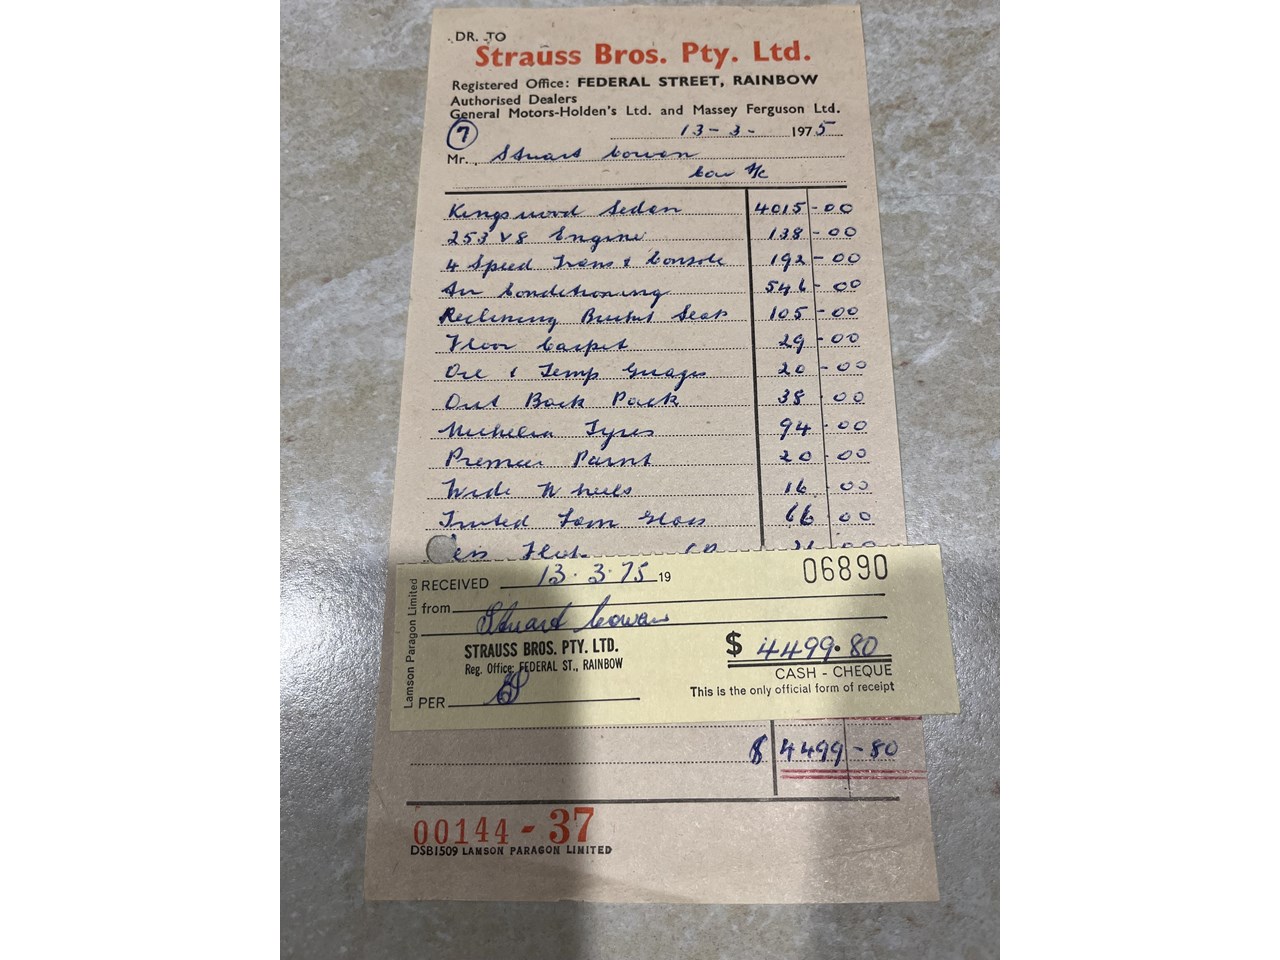 DR. TO
Strauss Bros. Pty. Ltd.
Registered Office: FEDERAL STREET, RAINBOW
Authorised Dealers
General Motors-Holden's Ltd. and Massey Ferguson Ltd.
7
13-3- 1975
Mr. Stuart Cowan
Kingswood Sedan 4015-00
253 V8 Engine 138-00
4 Speed Trans & Console 192-00
Air Conditioning 546-00
Reclining Bucket Seats 105-00
Floor Carpet 29-00
Oil & Temp Guages 20-00
Out Back Pack 38 00
Michelin Tyres 94-00
Premier Paint 20-00
Wide Wheels 16 00
Tinted Lam Glass 66 00
Lamson Paragon Limited
RECEIVED 13.3.75 19 06890
from Stuart Cowan
STRAUSS BROS. PTY. LTD.
Reg. Office: FEDERAL ST., RAINBOW
$ 4499.80
CASH - CHEQUE
This is the only official form of receipt
PER
$ 4499-80
00144-37
DSB1509 LAMSON PARAGON LIMITED